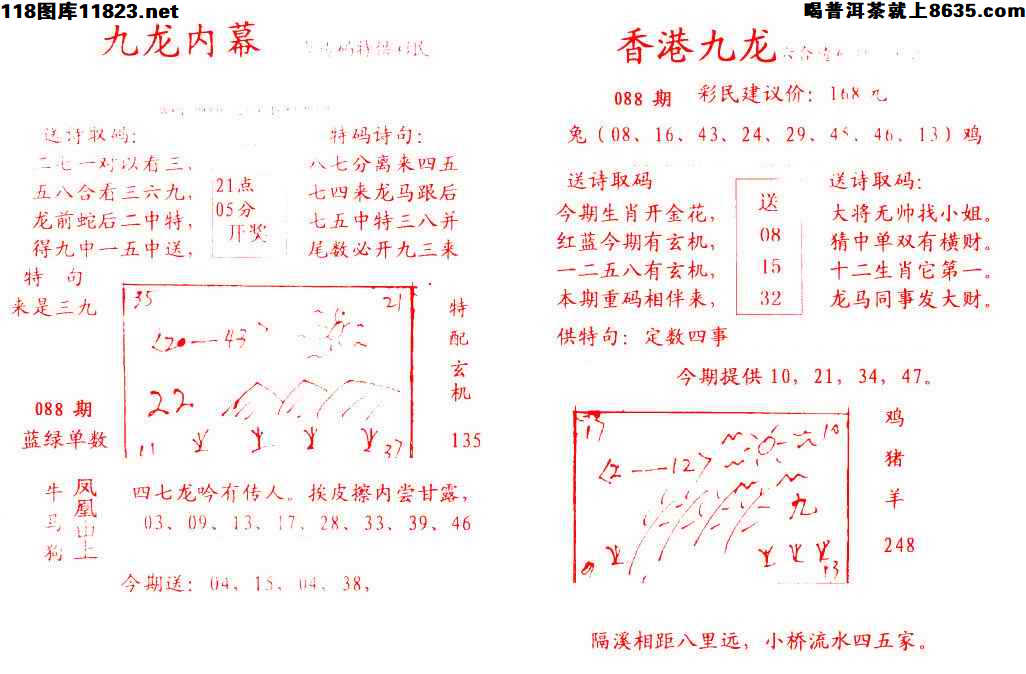 118图库11823.net
喝普洱茶就上8635.com
九龙内幕
送诗取码:
二七一对以有三,
五八合看三六九,
龙前蛇后二中特,
得九中一五中送,
特 句
来是三九
21点
05分
开奖
特码诗句:
八七分离来四五
七四来龙马跟后
七五中特三八并
尾数必开九三来
35
21
〈20—43〉
22
11
37
特配玄机
135
088 期
蓝绿单数
牛
马
狗
凤凰山上
四七龙吟有传人。挨皮擦内尝甘露,
03、09、13、17、28、33、39、46
今期送: 04、15、04、38,
香港九龙
088 期 彩民建议价: 168元
兔(08、16、43、24、29、45、46、13)鸡
送诗取码
今期生肖开金花,
红蓝今期有玄机,
一二五八有玄机,
本期重码相伴来,
送
08
15
32
送诗取码:
大将无帅找小姐。
猜中单双有横财。
十二生肖它第一。
龙马同事发大财。
供特句: 定数四事
今期提供 10, 21, 34, 47。
17
10
〈2—12〉
九
13
鸡
猪
羊
248
隔溪相距八里远, 小桥流水四五家。